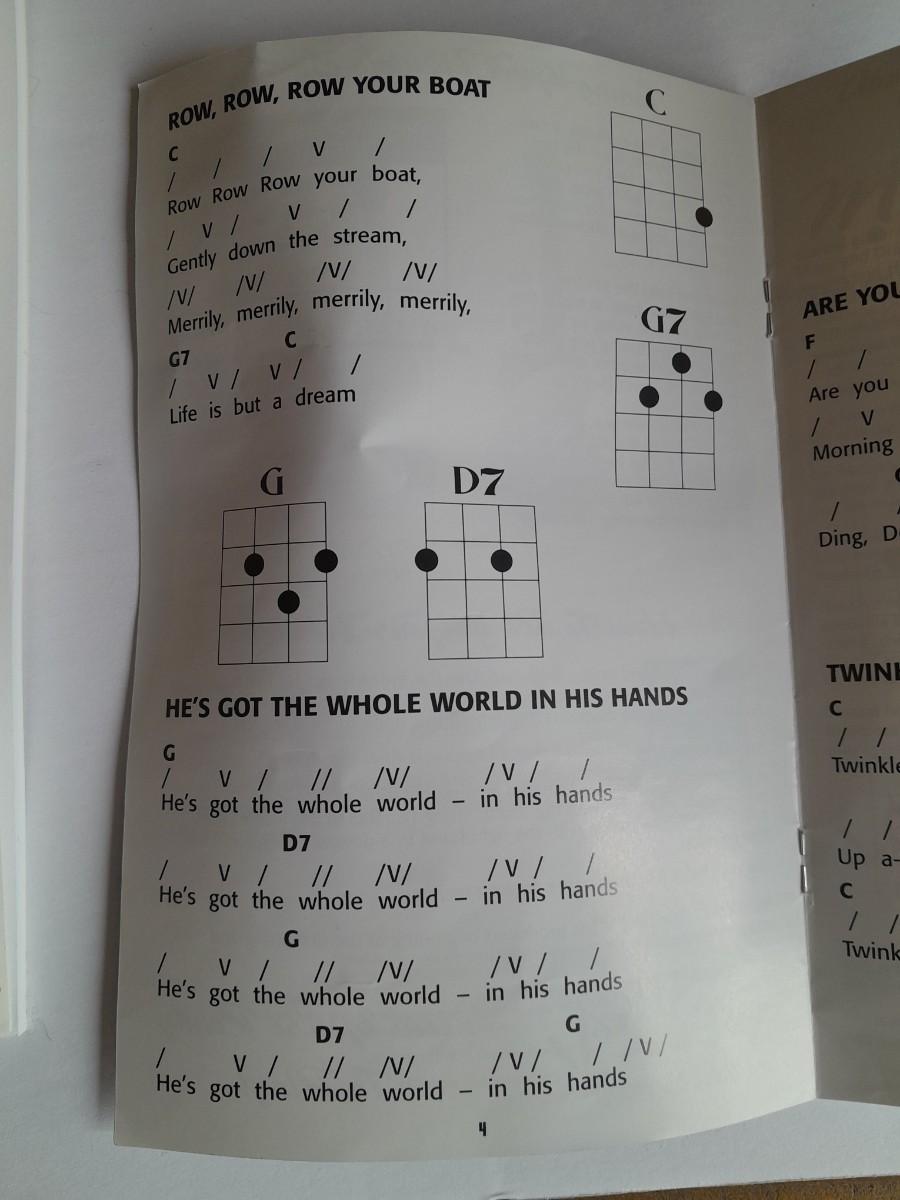 ROW, ROW, ROW YOUR BOAT
C
/ / / V /
Row Row Row your boat,
/ V / V / /
Gently down the stream,
/V/ /V/ /V/ /V/
Merrily, merrily, merrily, merrily,
G7 C
/ V / V / /
Life is but a dream
C
G7
G D7
HE'S GOT THE WHOLE WORLD IN HIS HANDS
G
/ V / // /V/ / V / /
He's got the whole world – in his hands
D7
/ V / // /V/ / V / /
He's got the whole world – in his hands
G
/ V / // /V/ / V / /
He's got the whole world – in his hands
D7 G
/ V / // /V/ / V / / / V /
He's got the whole world – in his hands
4
ARE YOU
F
/ /
Are you
/ V
Morning
/
Ding,
C
/ /
Twinkle
/ /
Up a-
C
/ /